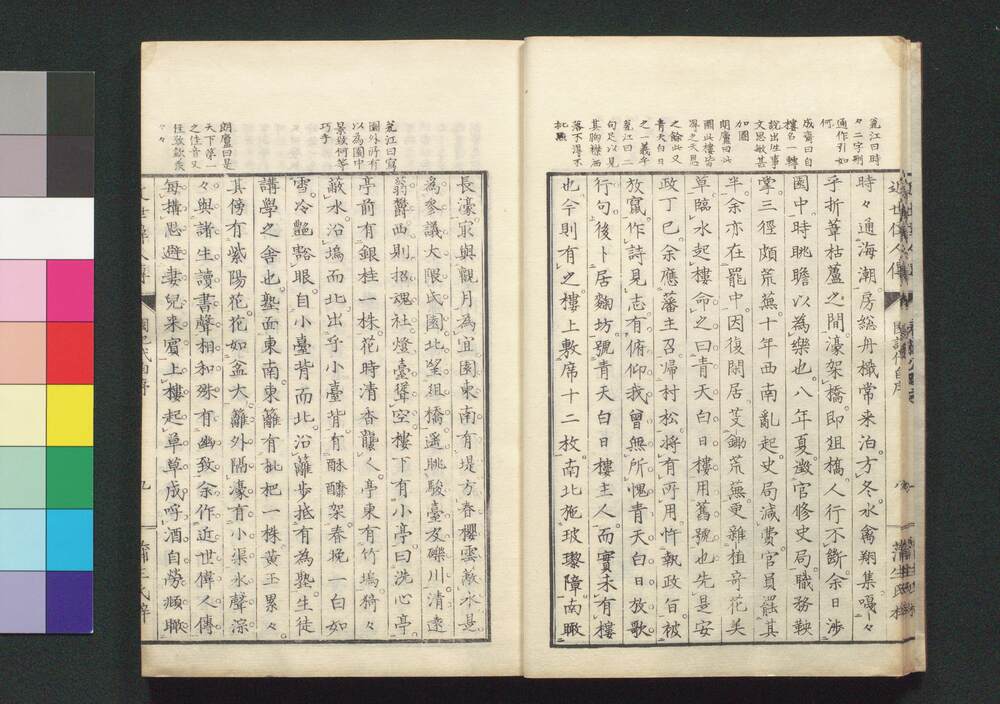 時々通海潮房総舟檝常来泊方冬水禽翔集嘎々
乎折葦枯蘆之間濠架橋即俎橋人行不断余日渉
園中時眺瞻以為樂也八年夏徴官修史局職務鞅
掌三徑頗荒蕪十年西南亂起史局減黌官員罷其
半余亦在罷中因復閑居芟鋤荒蕪更雜植奇花美
草臨水起樓命之曰青天白日樓用舊號也先是安
政丁巳余應藩主召帰村松將有所用忤執政旨被
放竄作詩見志有俯仰我曾無所愧青天白日放歌
行句後卜居麹坊號青天白日樓主人而實未有樓
也今則有之樓上敷席十二枚南北施玻瓈障南瞰
長濠最與觀月為宜園東南有堤方春櫻雲敵水是
為参議大隈氏園北望俎橋遥眺駿臺及礫川清遠
蓊欝西則招魂社燈臺聳空樓下有小亭曰洗心亭
亭前有銀桂一株花時清香襲人亭東有竹塢猗々
蔽水沿塢而北出乎小臺背有酴醾架春晚一白如
雪冷艶豁眼自小臺背而北沿籬歩抵有為塾生徒
講學之舍也塾面東南東籬有枇杷一株黄玉累々
其傍有紫陽花花如盆大籬外隔濠有小渠水聲淙
々與諸生讀書聲相和殊有幽致余作近世偉人傳
毎搆思避妻兒来賓上樓起草草成呼酒自勞頫瞰
甕江曰時
々二字刪
通作引如
何
成齋曰自
樓名一轉
說出生事
文思敏甚
加圈
朗廬曰此
園此樓皆
得之天恩
之餘此又
青天白日
之一義乎
甕江曰二
句足以見
其胸襟洒
落不得不
批點
甕江曰寫
園外所有
以為園中
景致何等
巧手
朗廬曰是
天下第一
之佳音又
佳致歆羨
々々
近世偉人傳
九